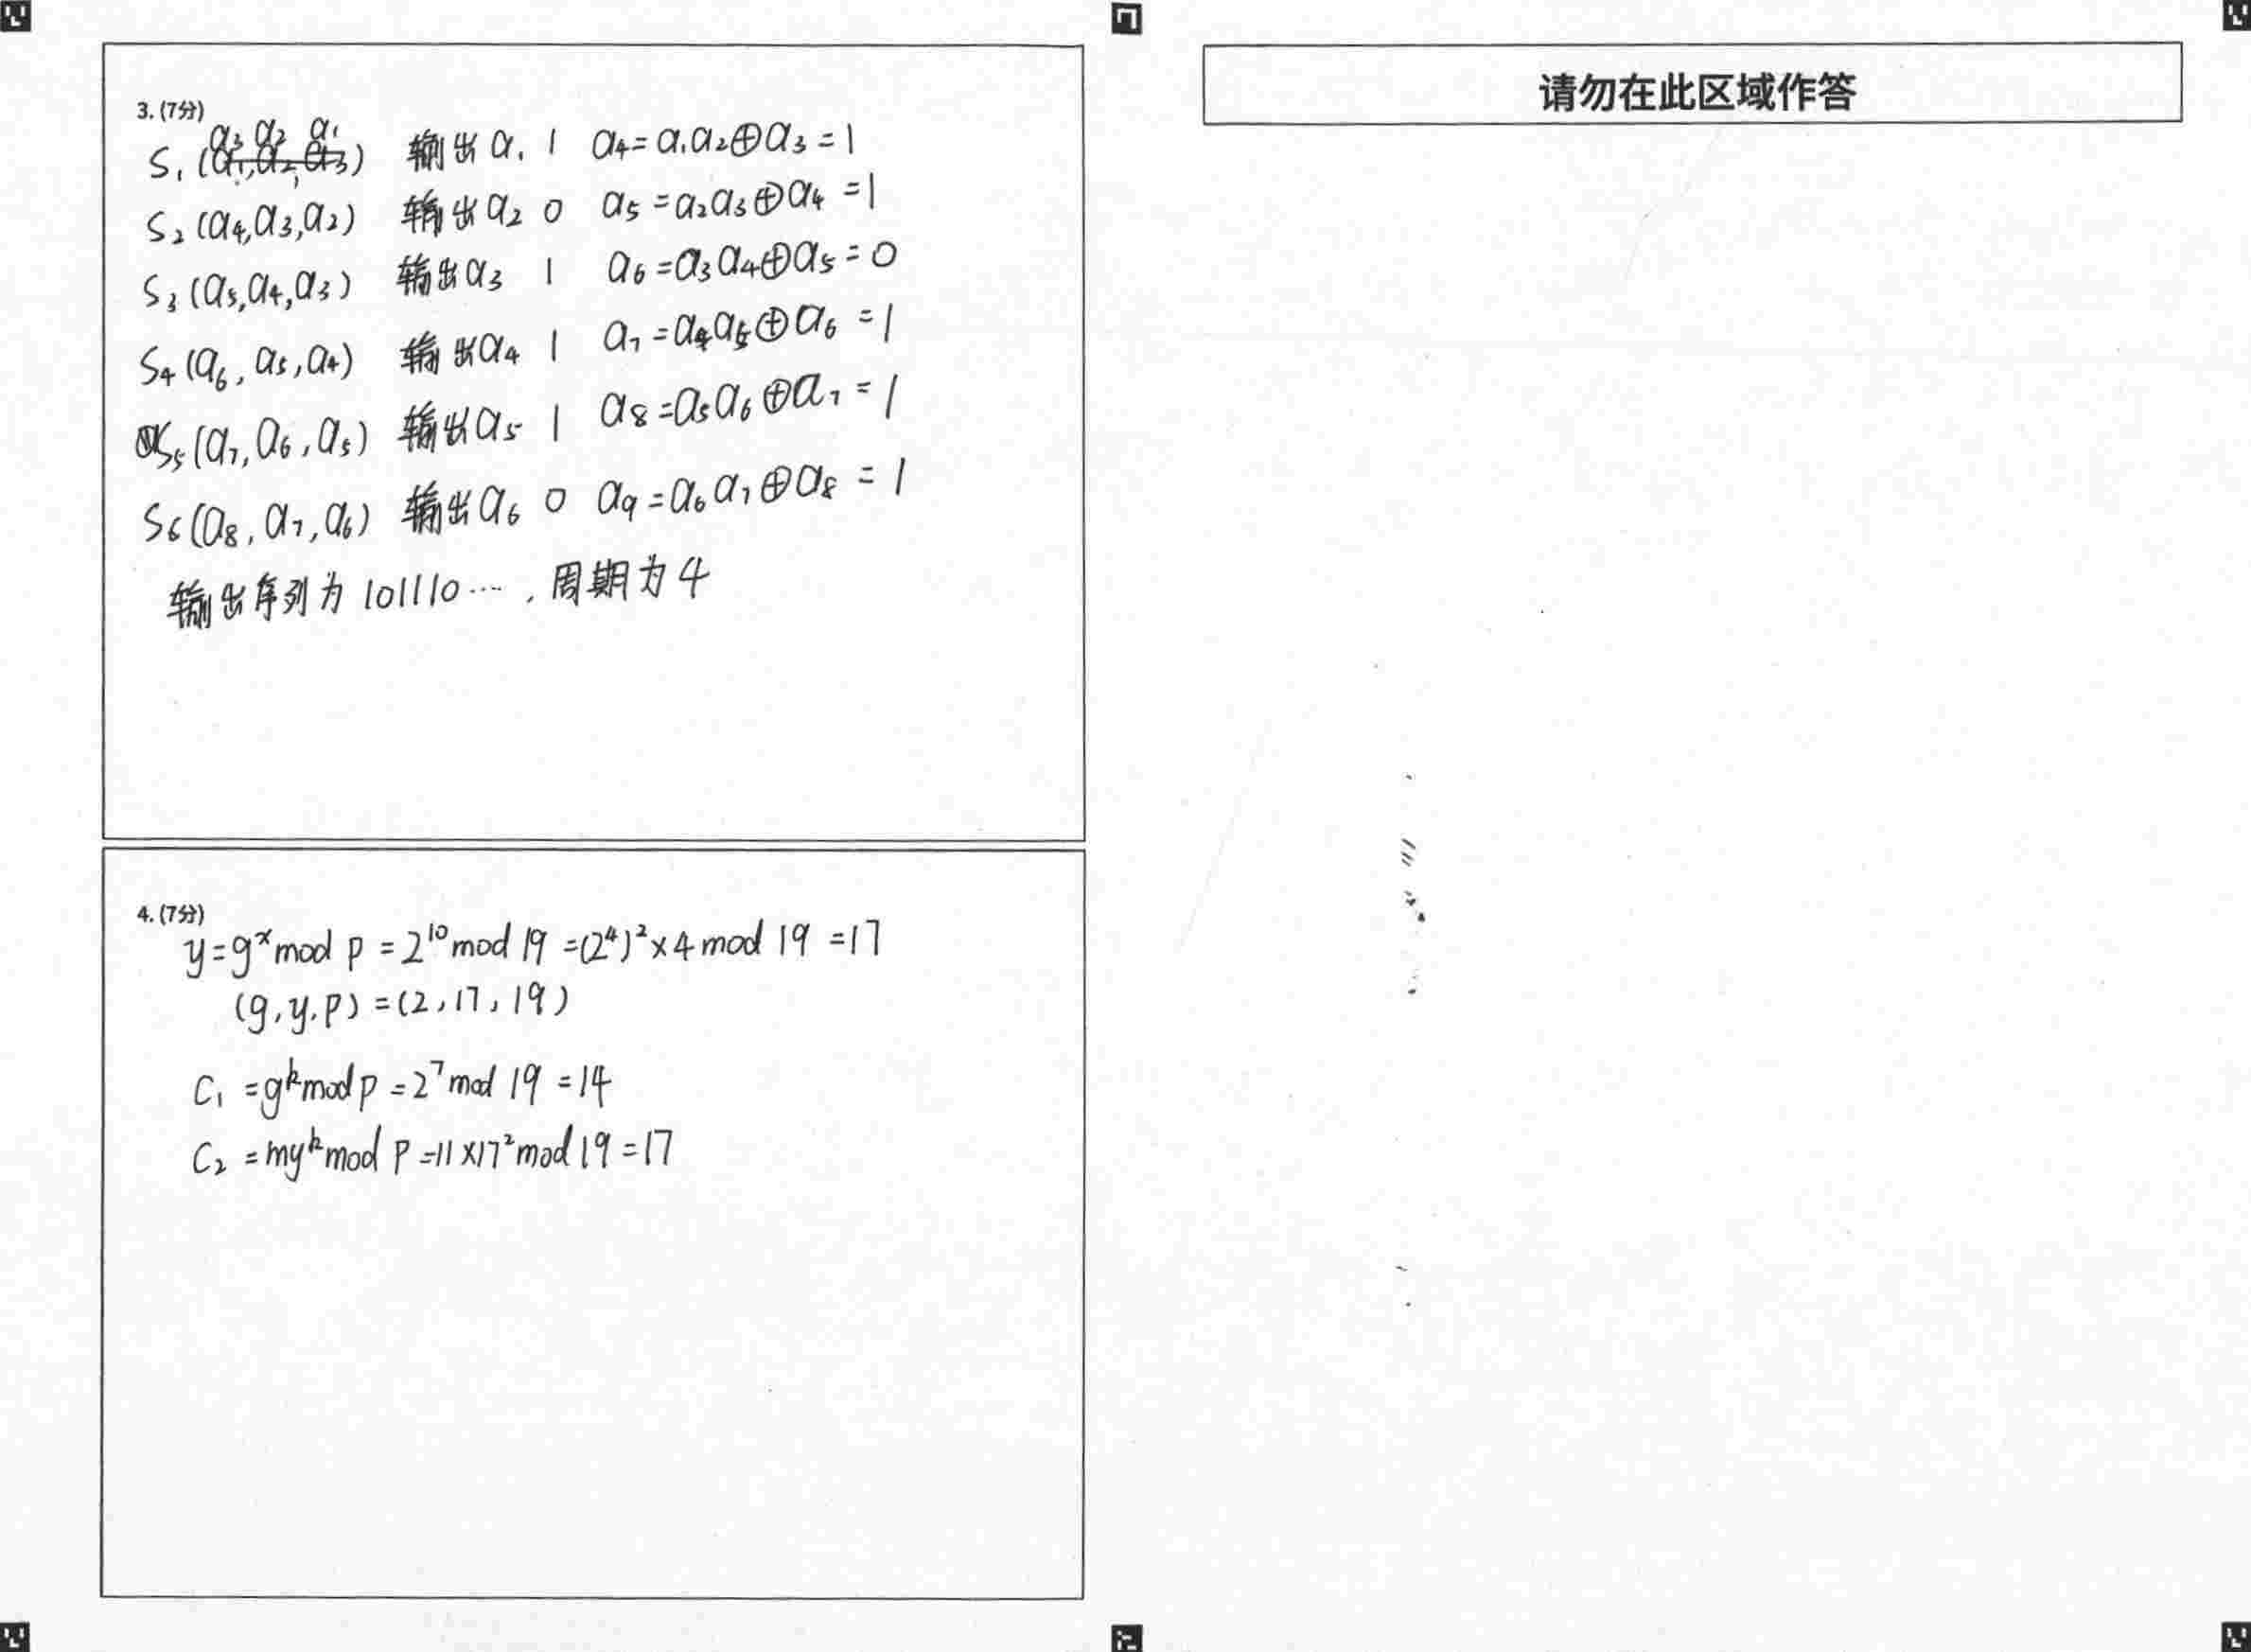 3. (7分)
a₃ a₂ a₁
S₁(a₁,a₂,a₃) 输出a₁ 1 a₄=a₁a₂⊕a₃=1
S₂(a₄,a₃,a₂) 输出a₂ 0 a₅=a₂a₃⊕a₄=1
S₃(a₅,a₄,a₃) 输出a₃ 1 a₆=a₃a₄⊕a₅=0
S₄(a₆,a₅,a₄) 输出a₄ 1 a₇=a₄a₅⊕a₆=1
S₅(a₇,a₆,a₅) 输出a₅ 1 a₈=a₅a₆⊕a₇=1
S₆(a₈,a₇,a₆) 输出a₆ 0 a₉=a₆a₇⊕a₈=1
输出序列为101110…,周期为4
4. (7分)
y=gˣmod p=2¹⁰mod 19=(2⁴)²×4mod 19=17
(g,y,p)=(2,17,19)
C₁=gᵏmod p=2⁷mod 19=14
C₂=myᵏmod p=11×17²mod 19=17
请勿在此区域作答